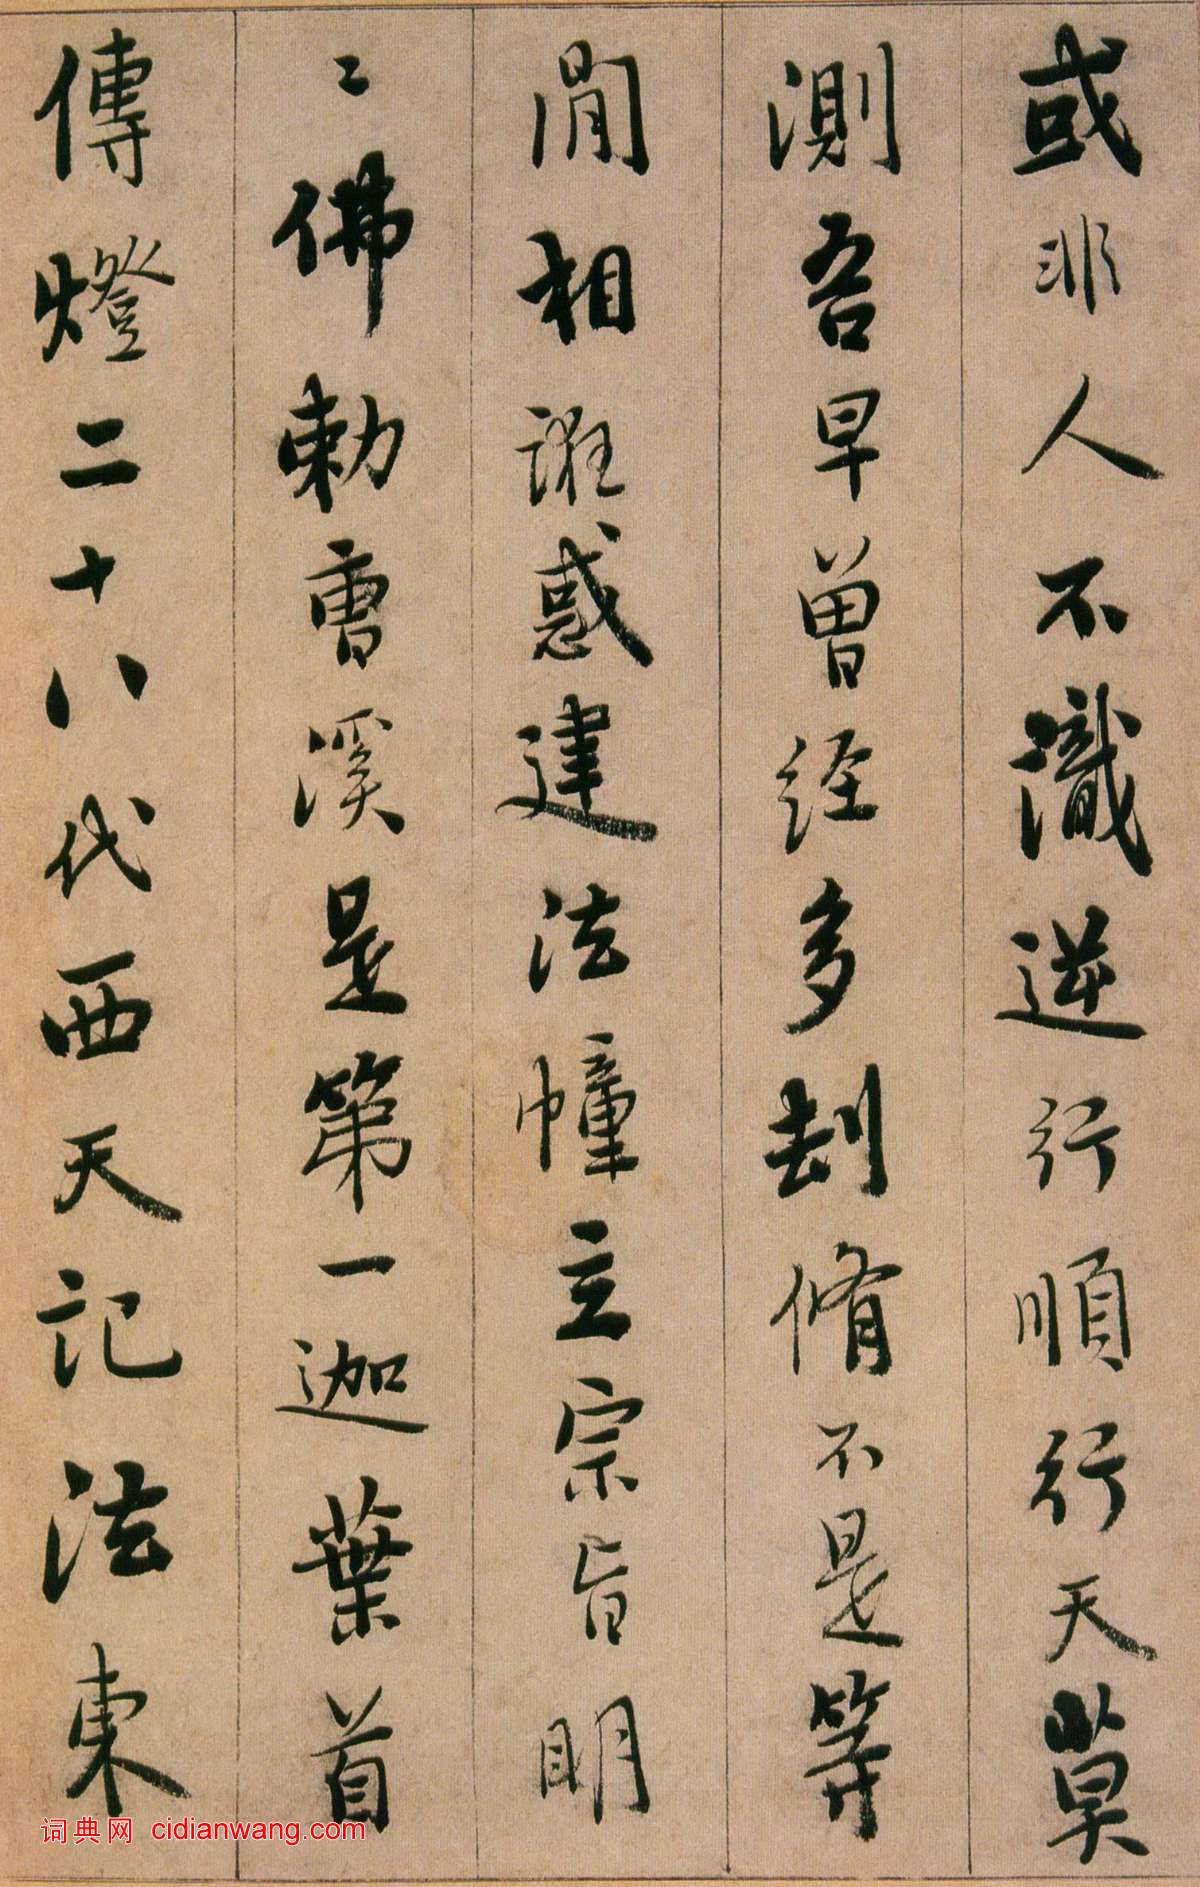 或非人不識逆行順行天莫
測吾早曾經多劫修不是等
閒相誑惑建法幢立宗旨明
〻佛勅曹溪是第一迦葉首
傳燈二十八代西天記法東
词典网 cidianwang.com